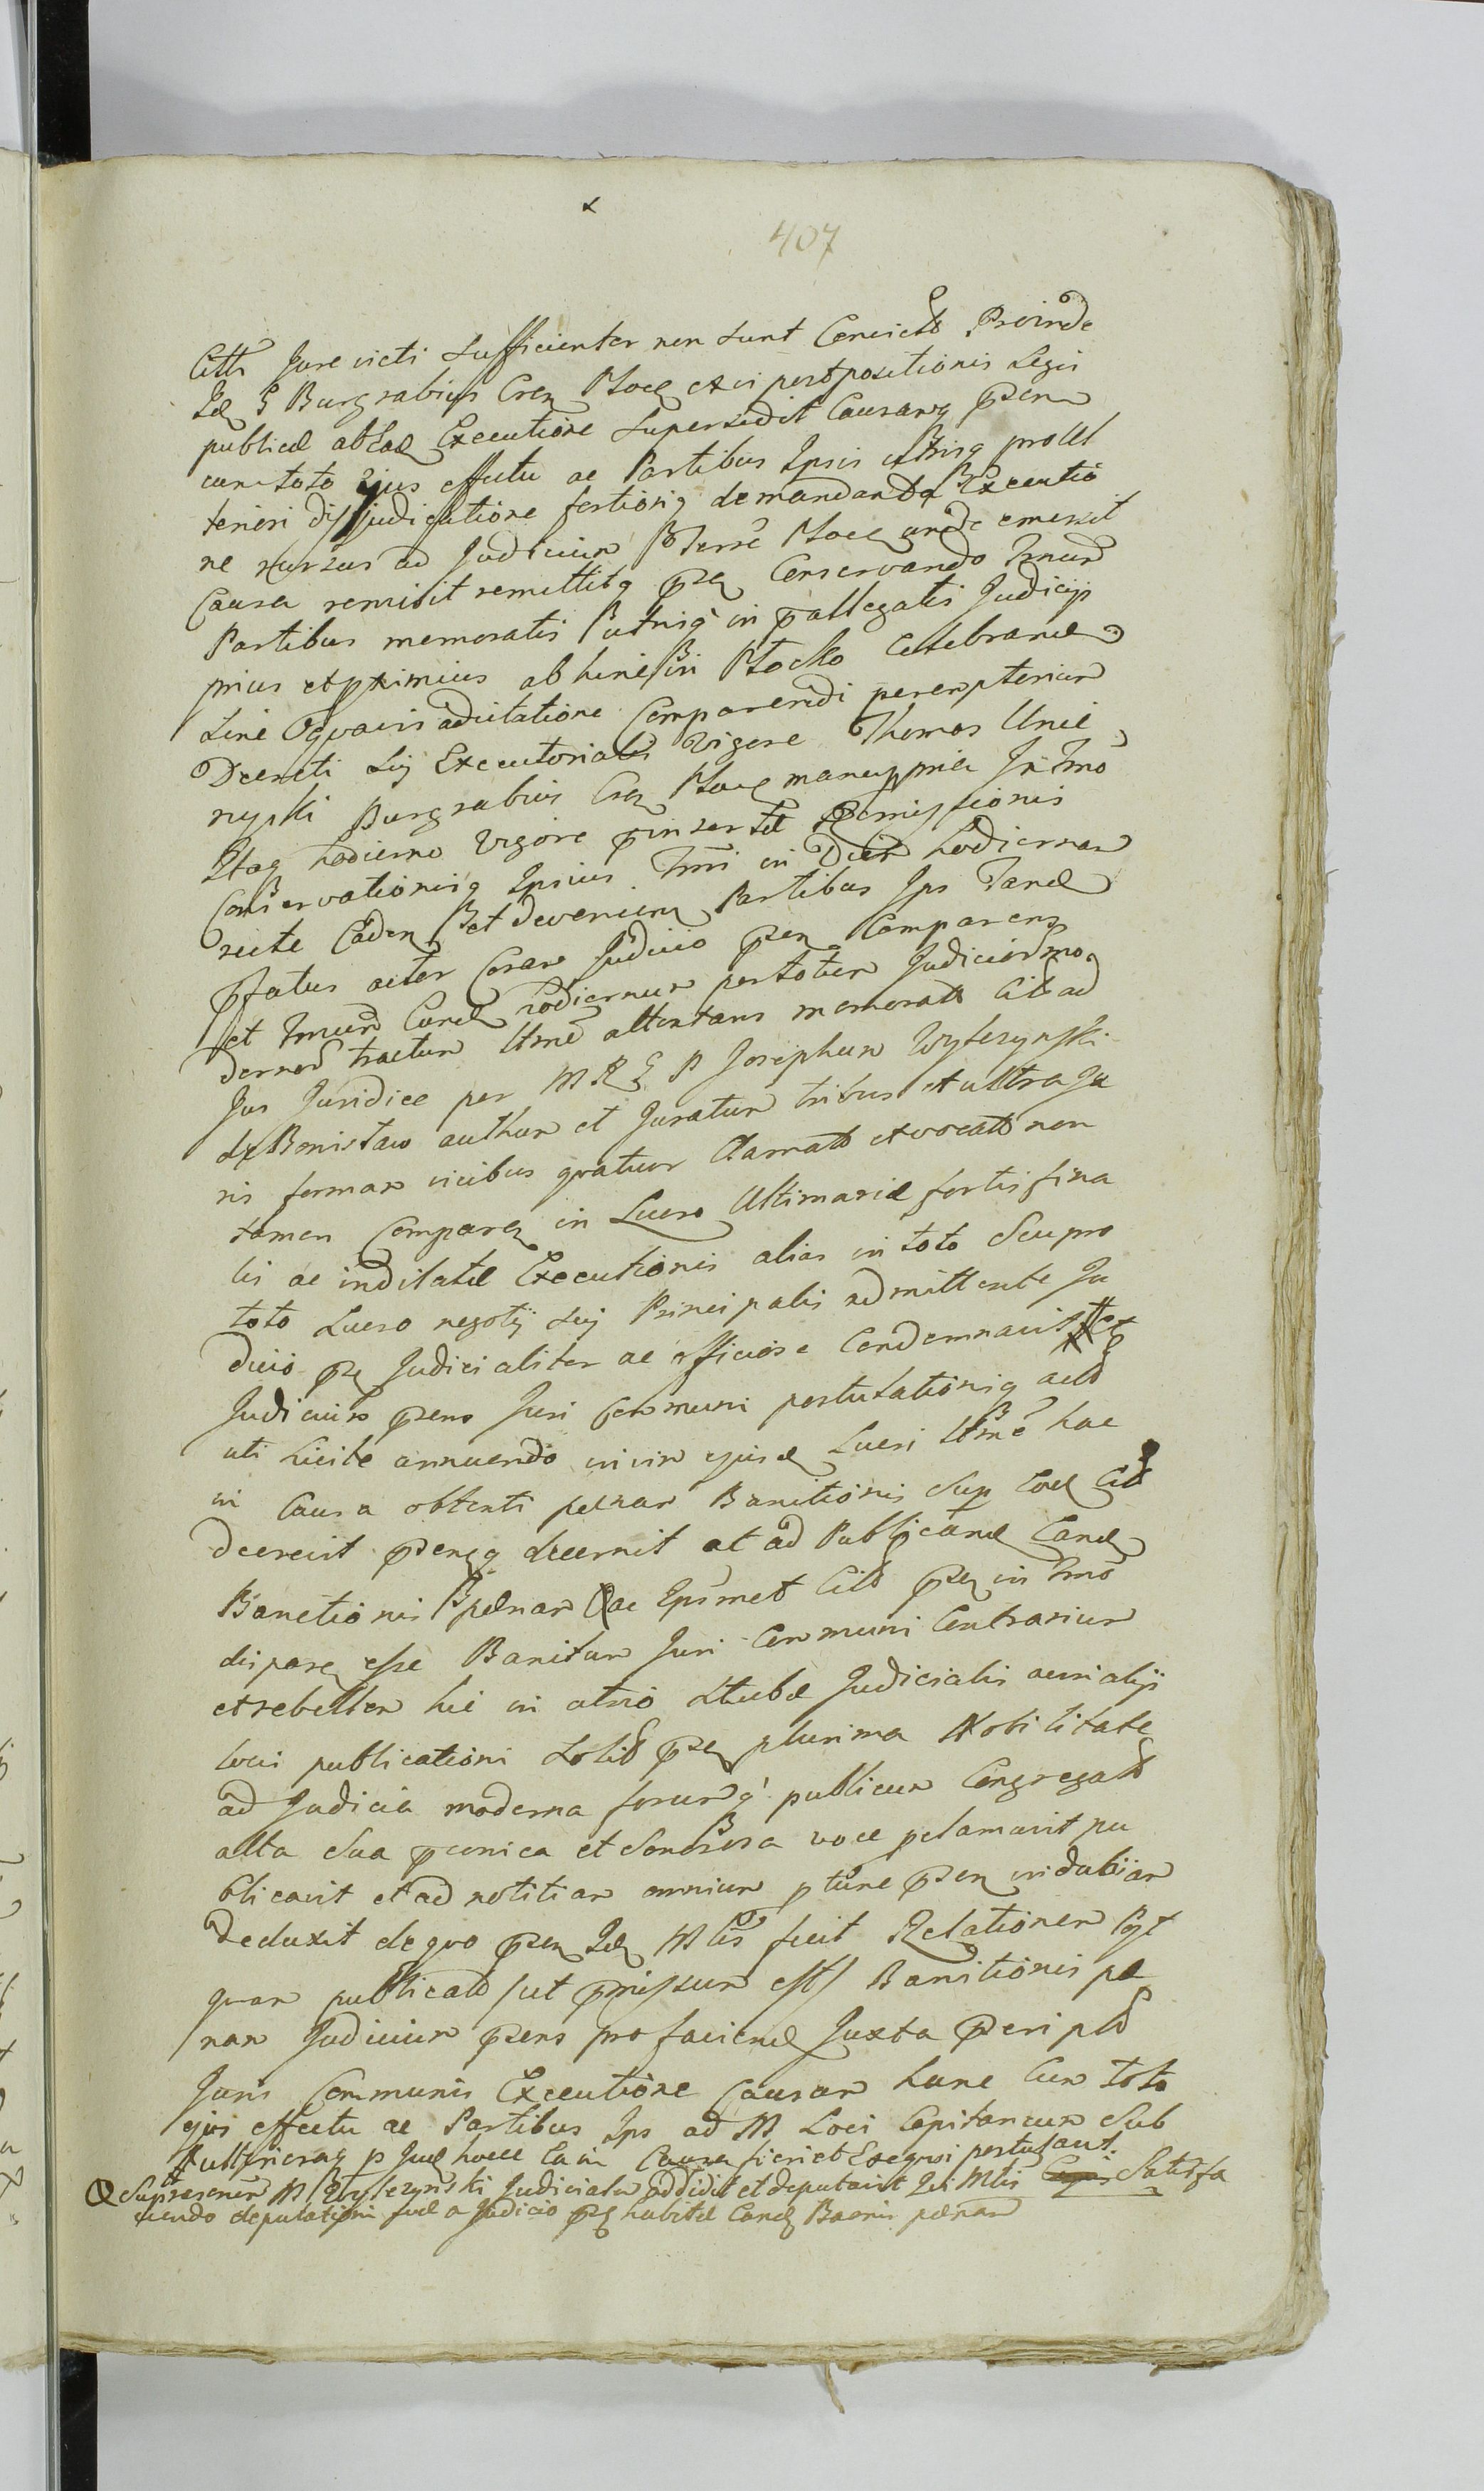 407
Citti Jure victi sufficienter non sunt Convicti Proinde
Idq G Burgrabius Cren Ploce ex vi postpositionis Legis
publicæ ab Eadq Executione supersedit Causamq psen
cum toto Ejus effectu ac Partibus Ipsis
teriori disjudicatione fortioriq demandandaq Executio
ne rursus ad Judicium Terre Ploce unde emersit
Causa remisit remittitq psq Conservando Tmum
Partibus memoratis putnisq in pallegatis Judicijs
prius et proximius ab hinc in Plocko Celebrand
sine Oquavis adcitatione Comparendi peremptorium
Decreti sui Executorialis Vigore Thomas
Burgrabius Cren Ploce manuppria In Tmo
Itaq hodierno Vigore pinsertæ Remissionis
Conservationisq Ipsius Tmi in Diem hodiernam
recte Caden et devenien Partibus Ips Tand
pfatus actor Coram Judicio psen Comparens
et Tmum Cand hodiernum per totum Judiciorum mo
dernor tractum ltme attentans memorat Cit ad
Jus Juridice per M R G P Josephum Wyslezynski
de Bonislaw authum et Juratum tribus et ultra Ju
ris formam vicibus quatuor Clamat et vocat non
tamen Comparen in Lucro Ultimariæ fortis fina
lis ac indilatæ Executionis alias in toto seu pro
toto Lucro negotij sui Principalis admittente Ju
dicio ps Judicialiter ac officiose Condemnavit Et
Judicium psens Juri Communi postulationiq acto
uti licite annuendo in vim ejusd Lucri ltme hac
in Causa obtenti pænam Banitionis sup Eod Cit
decrevit psensq decernit at ad Publicand Eand
Banitionis pænam ac Ipsmet Cit psen in Tmo
disparen esse Banitum Juri Communi Contrarium
et rebellem hic in atrio Stubæ Judicialis acsi alij
loci publicationi solit psen plurima Nobilitate
ad Judicia moderna forumq publicum Congregat
alta sua pconica et sonorosa voce pclamavit pu
blicavit et ad notitiam omnium ptunc psen indubiam
deduxit de quo psen Idq Mlis fecit Relationem Post
quam publicat ut pmissum est Banitionis pæ
nam Judicium psens pro faciend Juxta pscript
Juris Communis Executione Causam hanc Cum toto
ejus effectu ac Partibus Ips ad M Loci Capitaneum sub
p Jud hocce in Causa fieri et Exequi postulavit.
M Wyslezynski Judicialr addidit et deputavit Satisfa
ciendo deputationi suæ a Judicio psq habitæ Eand Baonis pænam